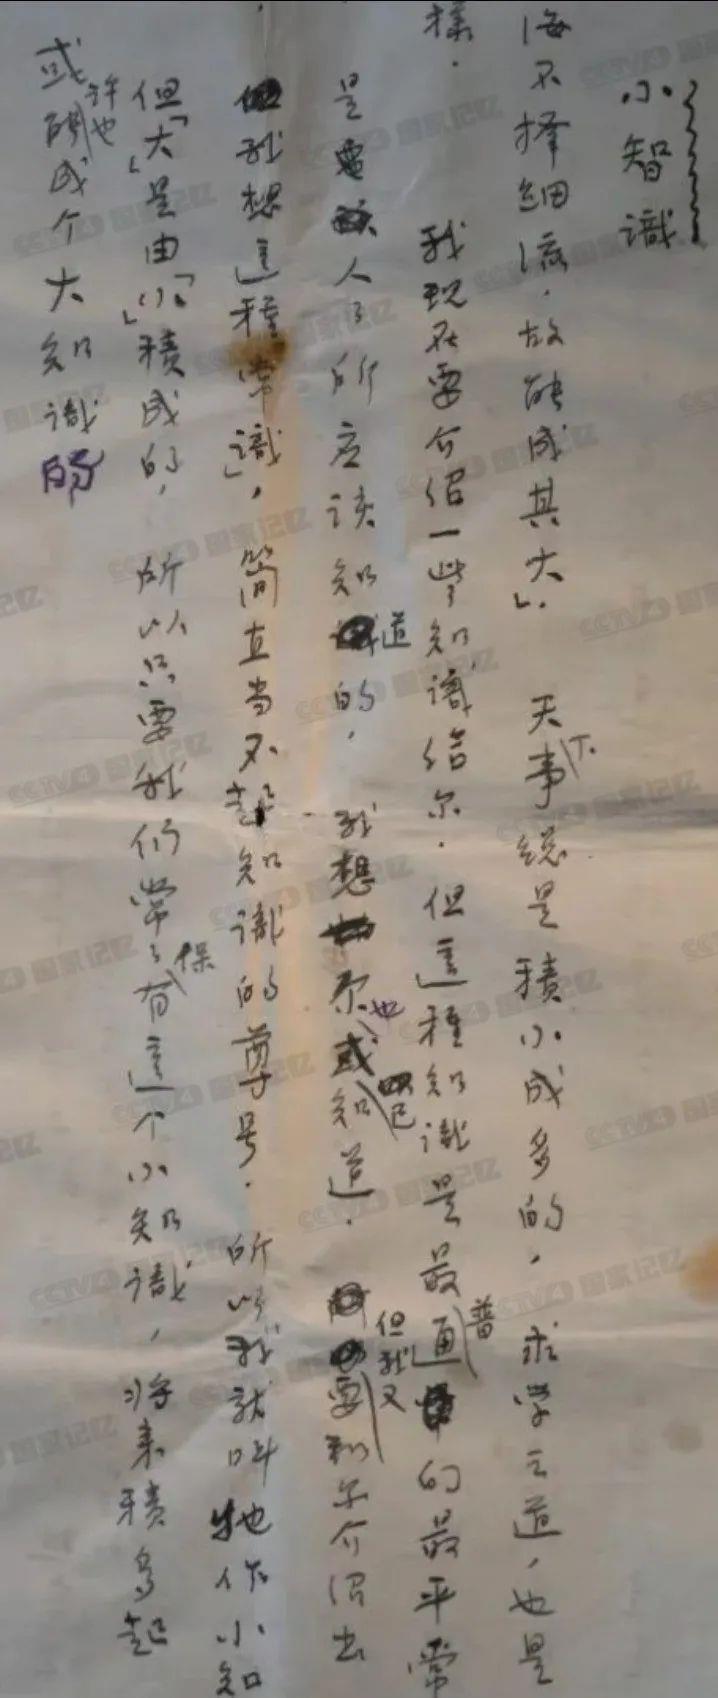 小智識
海不擇細流，故能成其大」．天下事總是積小成多的，求学之道，也是
樣．我現在要介绍一些知識給尔．但這種知識是最普通的最平常
是人々所应该知道的，我想尔也或已知道．但我又要和尔介绍出
我想這種「常識」，简直当不起知識的尊号．所以我就叫牠作小知
但「大」是由「小」積成的，所以只要我们常々保有這个小知識，将来積多起
或許也成个大知識